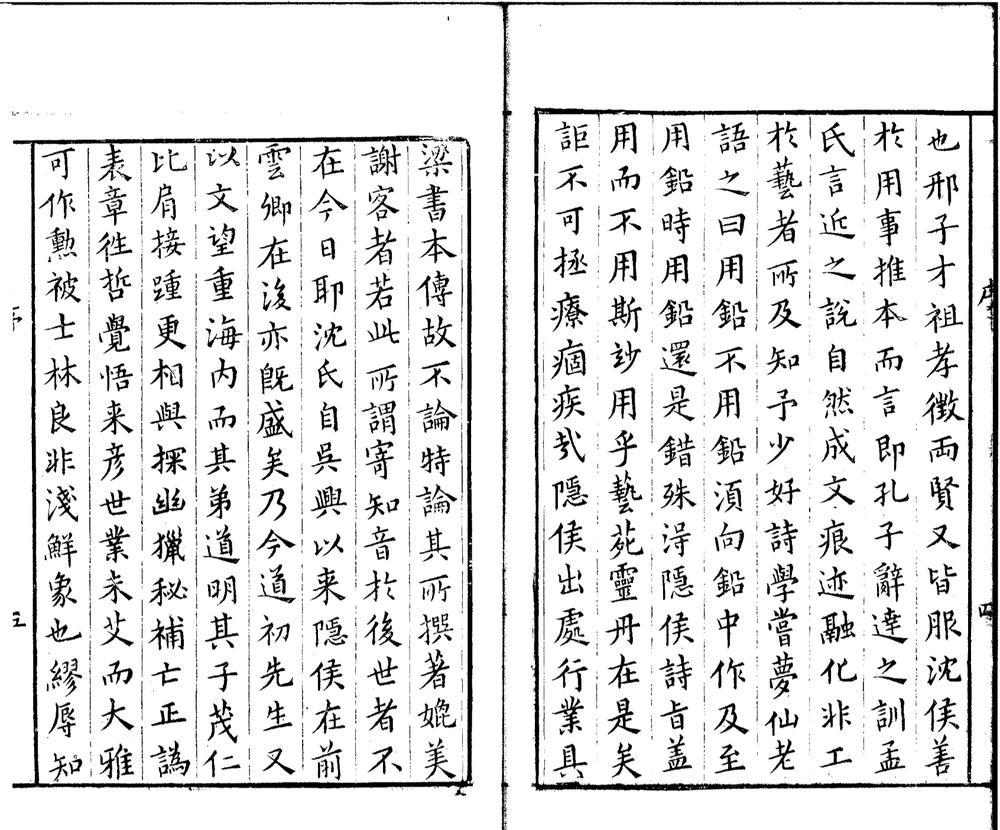 也邢子才祖孝徵両賢又皆服沈侯善
於用事推本而言即孔子辭達之訓孟
氏言近之說自然成文痕迹融化非工
於藝者所及知予少好詩學嘗夢仙老
語之曰用鉛不用鉛須向鉛中作及至
用鉛時用鉛還是錯殊淂隱侯詩旨盖
用而不用斯玅用乎藝苑靈丹在是矣
詎不可拯療痼疾㢤隱侯出處行業具
序
四
梁書本傳故不論特論其所撰著媲美
謝客者若此所謂寄知音於後世者不
在今日耶沈氏自吳興以来隱侯在前
雲卿在後亦既盛矣乃今道初先生又
以文望重海内而其弟道明其子茂仁
比肩接踵更相與探幽獵秘補亡正譌
表章徃哲覺悟来彦世業未艾而大雅
可作勲被士林良非淺鮮象也繆辱知
序
五